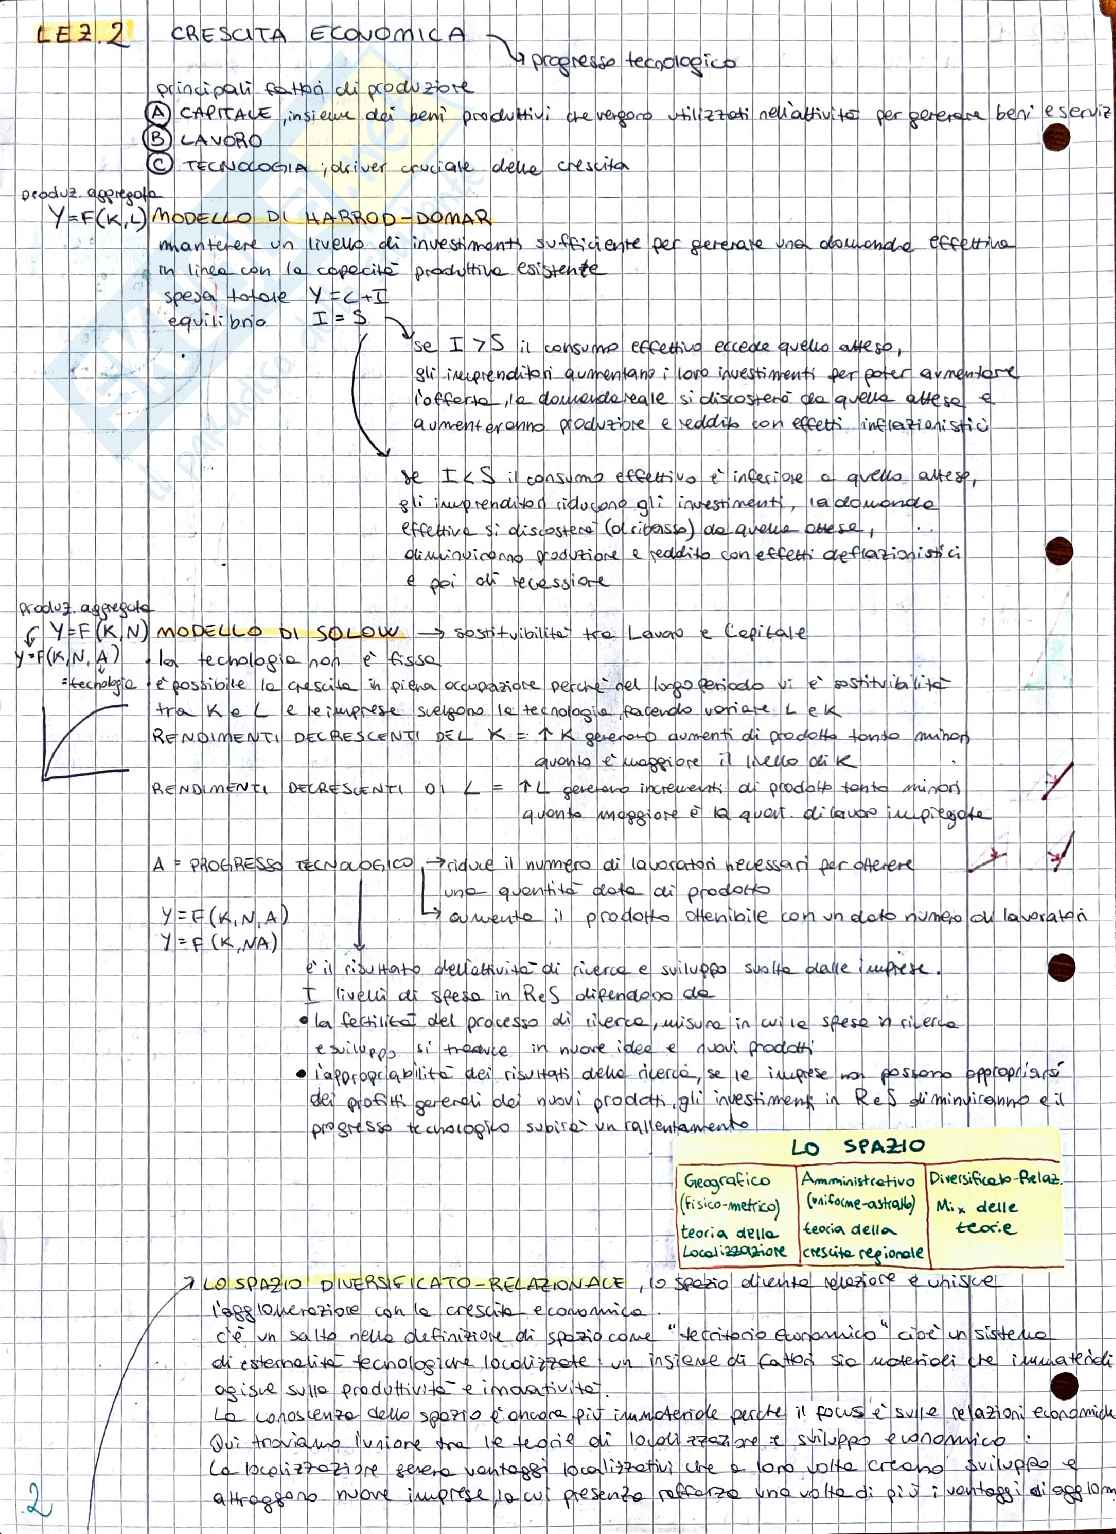 LEZ.2 CRESCITA ECONOMICA
progresso tecnologico
principali fattori di produzione
A CAPITALE, insieme dei beni produttivi che vengono utilizzati nell'attività per generare beni e serviz
B LAVORO
C TECNOLOGIA, driver cruciale della crescita
produz. aggregata
Y=F(K,L) MODELLO DI HARROD-DOMAR
mantenere un livello di investimenti sufficiente per generare una domanda effettiva
in linea con la capacità produttiva esistente
spesa totale Y=C+I
equilibrio I=S
se I>S il consumo effettivo eccede quello atteso,
gli imprenditori aumentano i loro investimenti per poter aumentare
l'offerta, la domanda reale si discosterà da quella attesa e
aumenteranno produzione e reddito con effetti inflazionistici
se I<S il consumo effettivo è inferiore a quello atteso,
gli imprenditori riducono gli investimenti, la domanda
effettiva si discosterà (al ribasso) da quella attesa,
diminuiranno produzione e reddito con effetti deflazionistici
e poi di recessione
produz. aggregata
Y=F(K,N) MODELLO DI SOLOW → sostituibilità tra Lavoro e Capitale
Y=F(K,N,A) • la tecnologia non è fissa
=tecnologia • è possibile la crescita in piena occupazione perché nel lungo periodo vi è sostituibilità
tra K e L e le imprese scelgono la tecnologia, facendo variare L e K
RENDIMENTI DECRESCENTI DEL K = ↑K generano aumenti di prodotto tanto minori
quanto è maggiore il livello di K
RENDIMENTI DECRESCENTI DI L = ↑L generano incrementi di prodotto tanto minori
quanto maggiore è la quant. di lavoro impiegata
A = PROGRESSO TECNOLOGICO → riduce il numero di lavoratori necessari per ottenere
una quantità data di prodotto
Y=F(K,N,A) → aumenta il prodotto ottenibile con un dato numero di lavoratori
Y=F(K,NA)
è il risultato dell'attività di ricerca e sviluppo svolta dalle imprese.
I livelli di spesa in ReS dipendono da
• la fertilità del processo di ricerca, misura in cui la spesa in ricerca
e sviluppo si traduce in nuove idee e nuovi prodotti
• l'appropriabilità dei risultati della ricerca, se le imprese non possono appropriarsi
dei profitti generati dei nuovi prodotti, gli investimenti in ReS diminuiranno e il
progresso tecnologico subirà un rallentamento
LO SPAZIO
Geografico Amministrativo Diversificato-Relaz.
(fisico-metrico) (uniforme-astratto) Mix delle
teoria della teoria della teorie
Localizzazione crescita regionale
LO SPAZIO DIVERSIFICATO-RELAZIONALE, lo spazio diventa relazione e unisce
l'agglomerazione con la crescita economica.
c'è un salto nella definizione di spazio come "territorio economico" cioè un sistema
di esternalità tecnologiche localizzate: un insieme di fattori sia materiali che immateriali
agisce sulla produttività e innovatività.
La conoscenza dello spazio è ancora più immateriale perché il focus è sulle relazioni economiche
Qui troviamo l'unione tra le teorie di localizzazione e sviluppo economico:
La localizzazione genera vantaggi localizzativi che a loro volta creano sviluppo e
attraggono nuove imprese, la cui presenza rafforza una volta di più i vantaggi di agglom
2